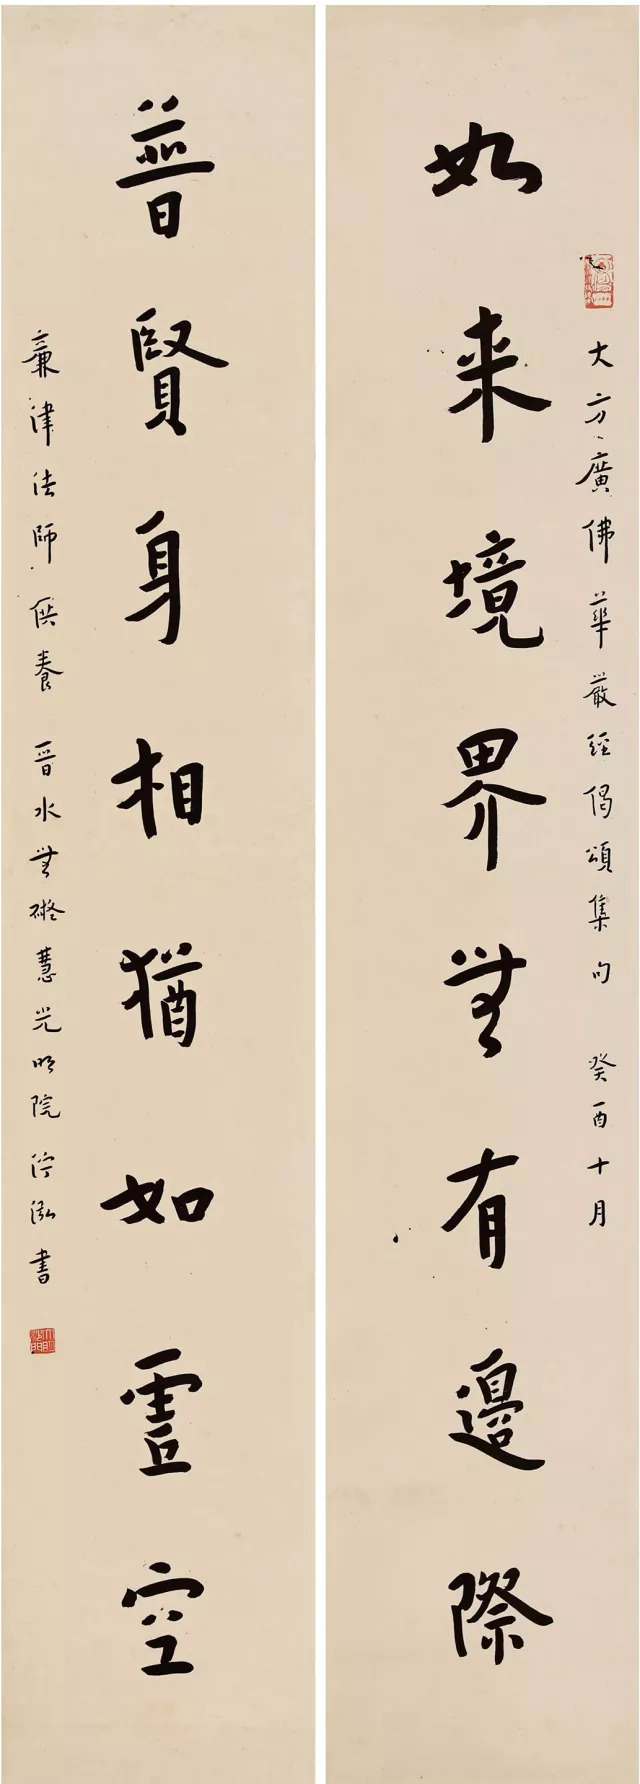 大方廣佛華嚴經偈頌集句 癸酉十月
如来境界無有邊際
普賢身相猶如虛空
廉津法師供養 晉水無礙慧光明院 沙門書